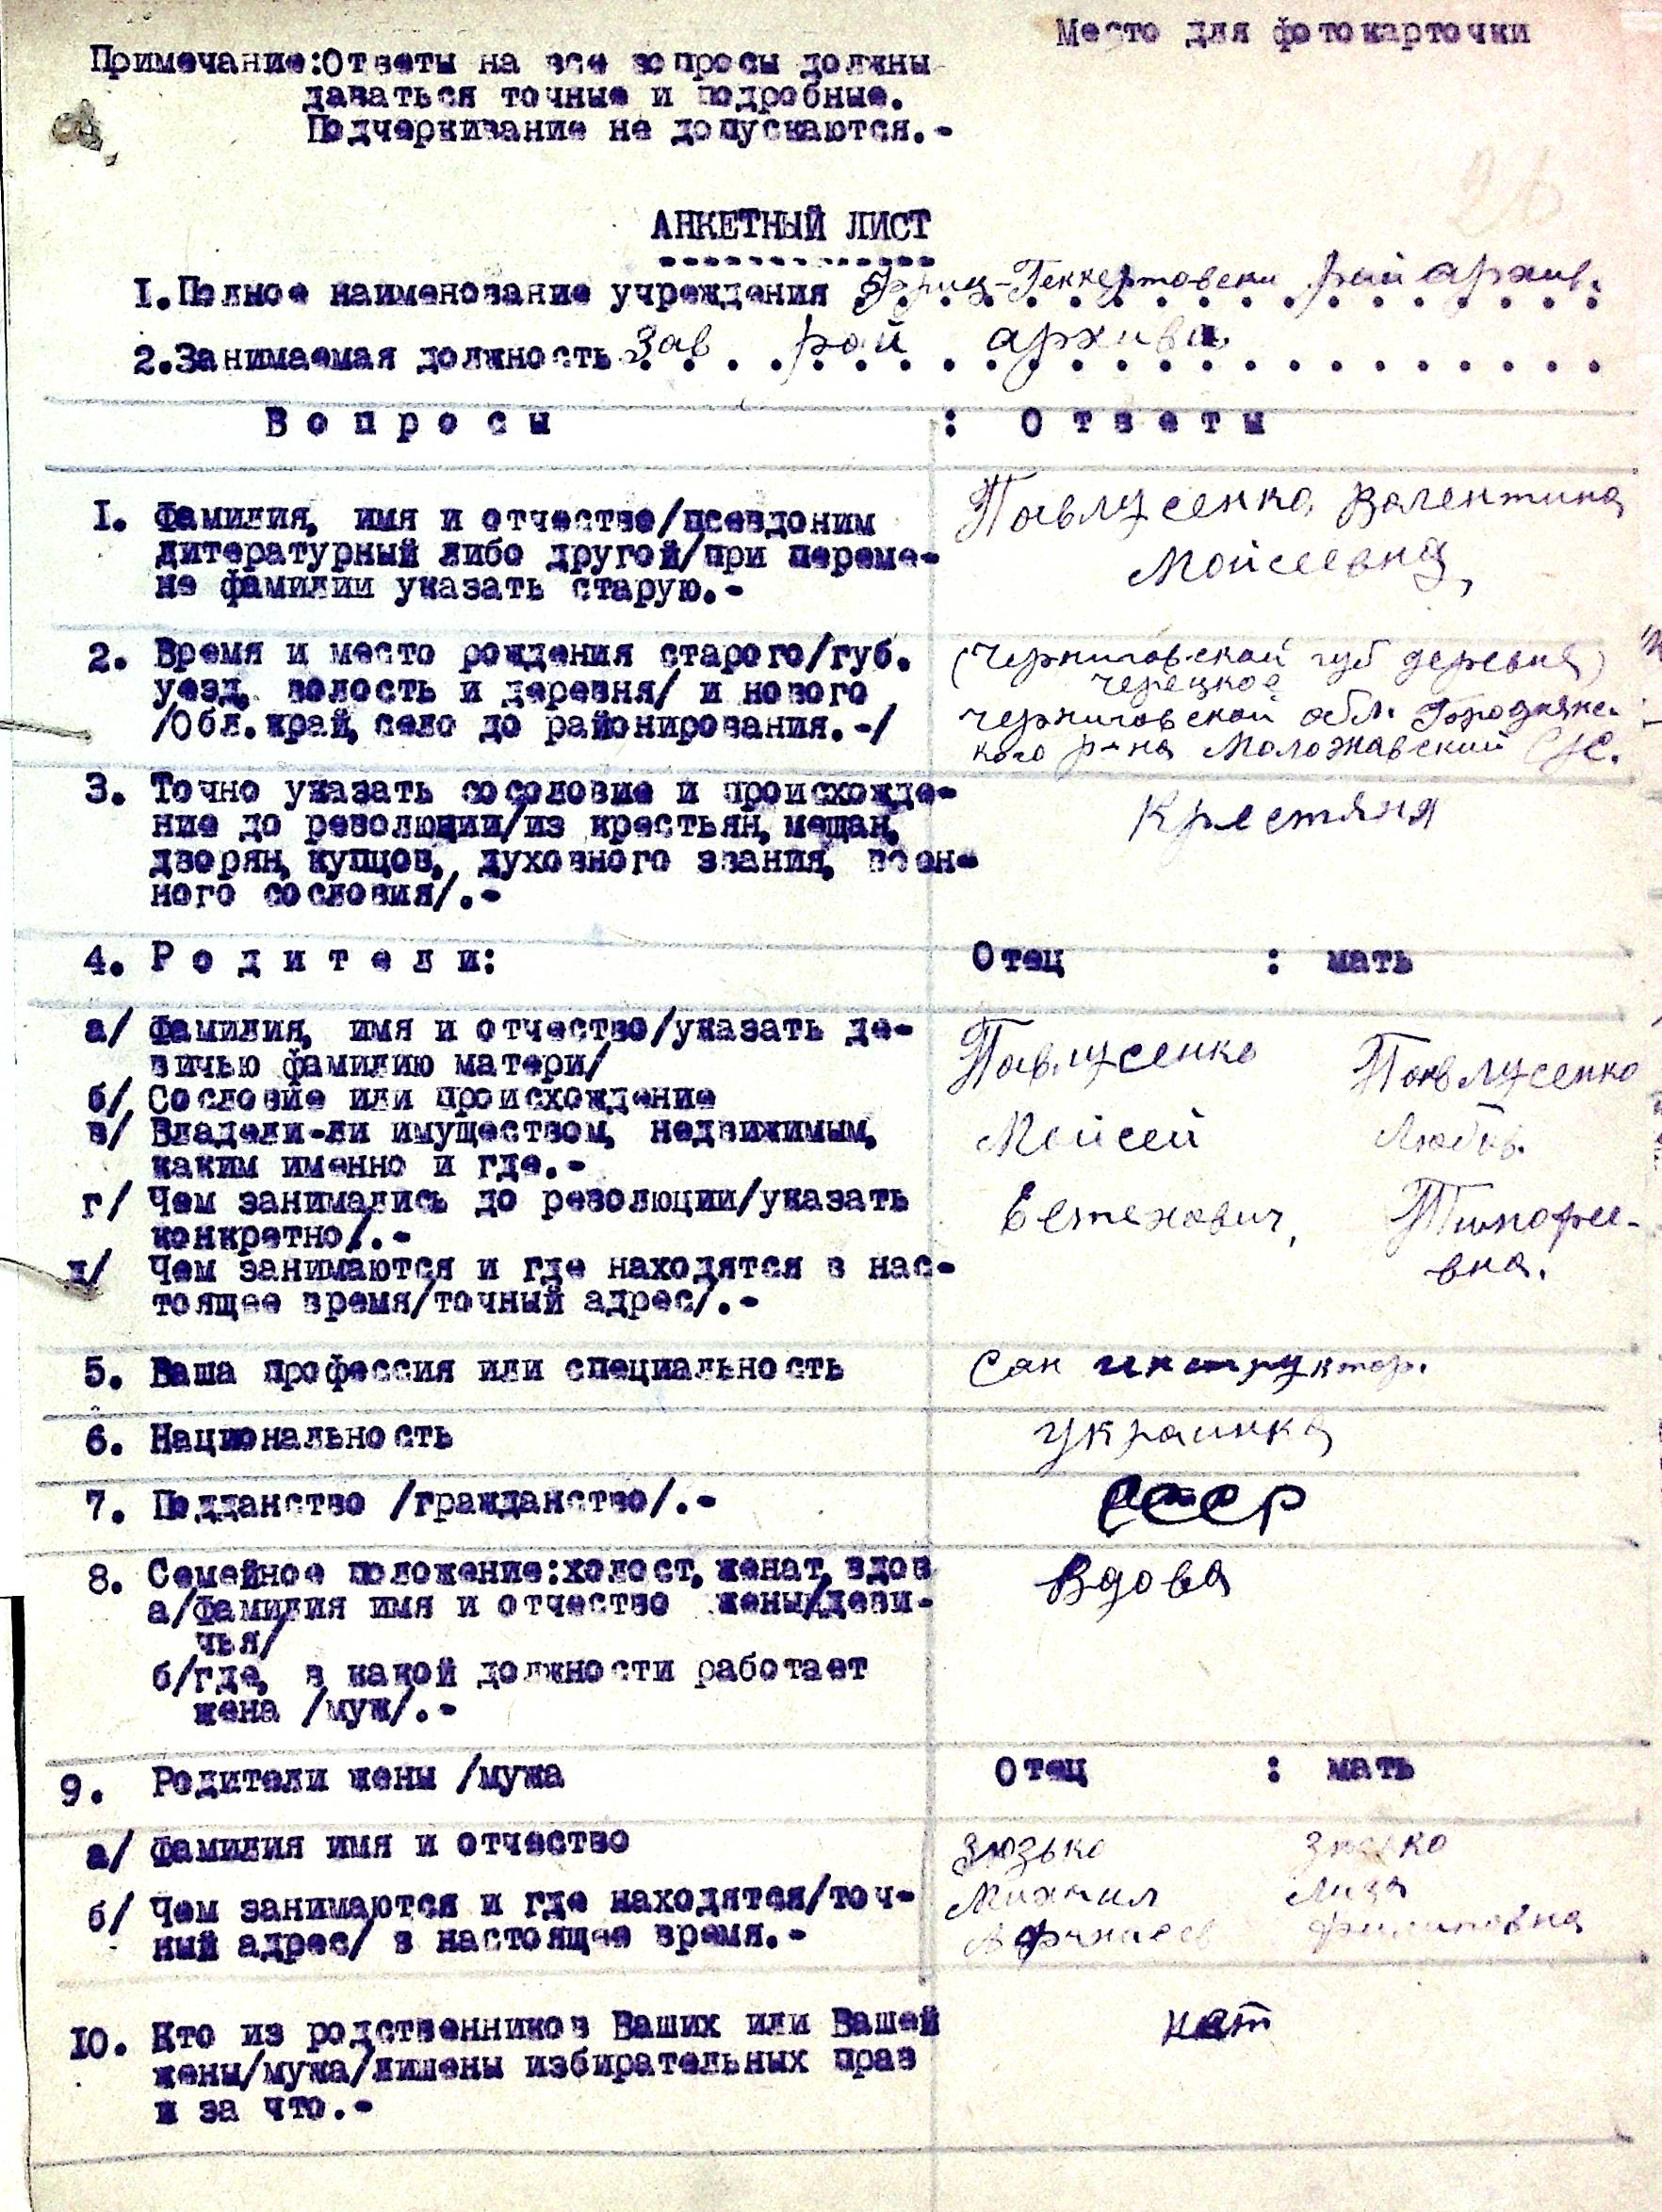 Место для фотокарточки
Примечание:Ответы на все вопросы должны
даваться точные и подробные.
Подчеркивание не допускаются.-
АНКЕТНЫЙ ЛИСТ
I.Полное наименование учреждения Фриц-Геккертовски рай архив.
2.Занимаемая должность Зав рай архива
Вопросы : Ответы
I. Фамилия, имя и отчество/псевдоним
литературный либо другой/при переме-
не фамилии указать старую.-
Павлусенко Валентина
Мойсеевна,
2. Время и место рождения старого/губ.
уезд, волость и деревня/ и нового
/Обл.край, село до районирования.-/
(Черниговской губ деревня)
черецкое
черниговской обл. Городнянс-
кого р-на Моложавский С/С.
3. Точно указать сосоловие и происхожде-
ние до революции/из крестьян, мещан,
дворян, купцов, духовного звания, воен-
ного сословия/.-
Крестяня
4. Родители: Отец : мать
а/ Фамилия, имя и отчество/указать де-
вичью фамилию матери/
б/ Сословие или происхождение
в/ Владели-ли имуществом, недвижимым,
каким именно и где.-
г/ Чем занимались до революции/указать
конкретно/.-
д/ Чем занимаются и где находятся в нас-
тоящее время/точный адрес/.-
Павлусенко Павлусенко
Мойсей Любовь
Естехович, Тимофее-
вна.
5. Ваша профессия или специальность Сан инструктор.
6. Национальность украинка
7. Подданство /гражданство/.- СССР
8. Семейное положение:холост, женат, вдов
а/фамилия имя и отчество жены/деви-
чья/
б/где, в какой должности работает
жена /муж/.-
Вдова
9. Родители жены /мужа Отец : мать
а/ Фамилия имя и отчество
б/ Чем занимаются и где находятся/точ-
ный адрес/ в настоящее время.-
Зюзько Зюзько
Михаил Лиза
Афанасев Филиповна
IO. Кто из родственников Ваших или Вашей
жены/мужа/лишены избирательных прав
и за что.-
нет